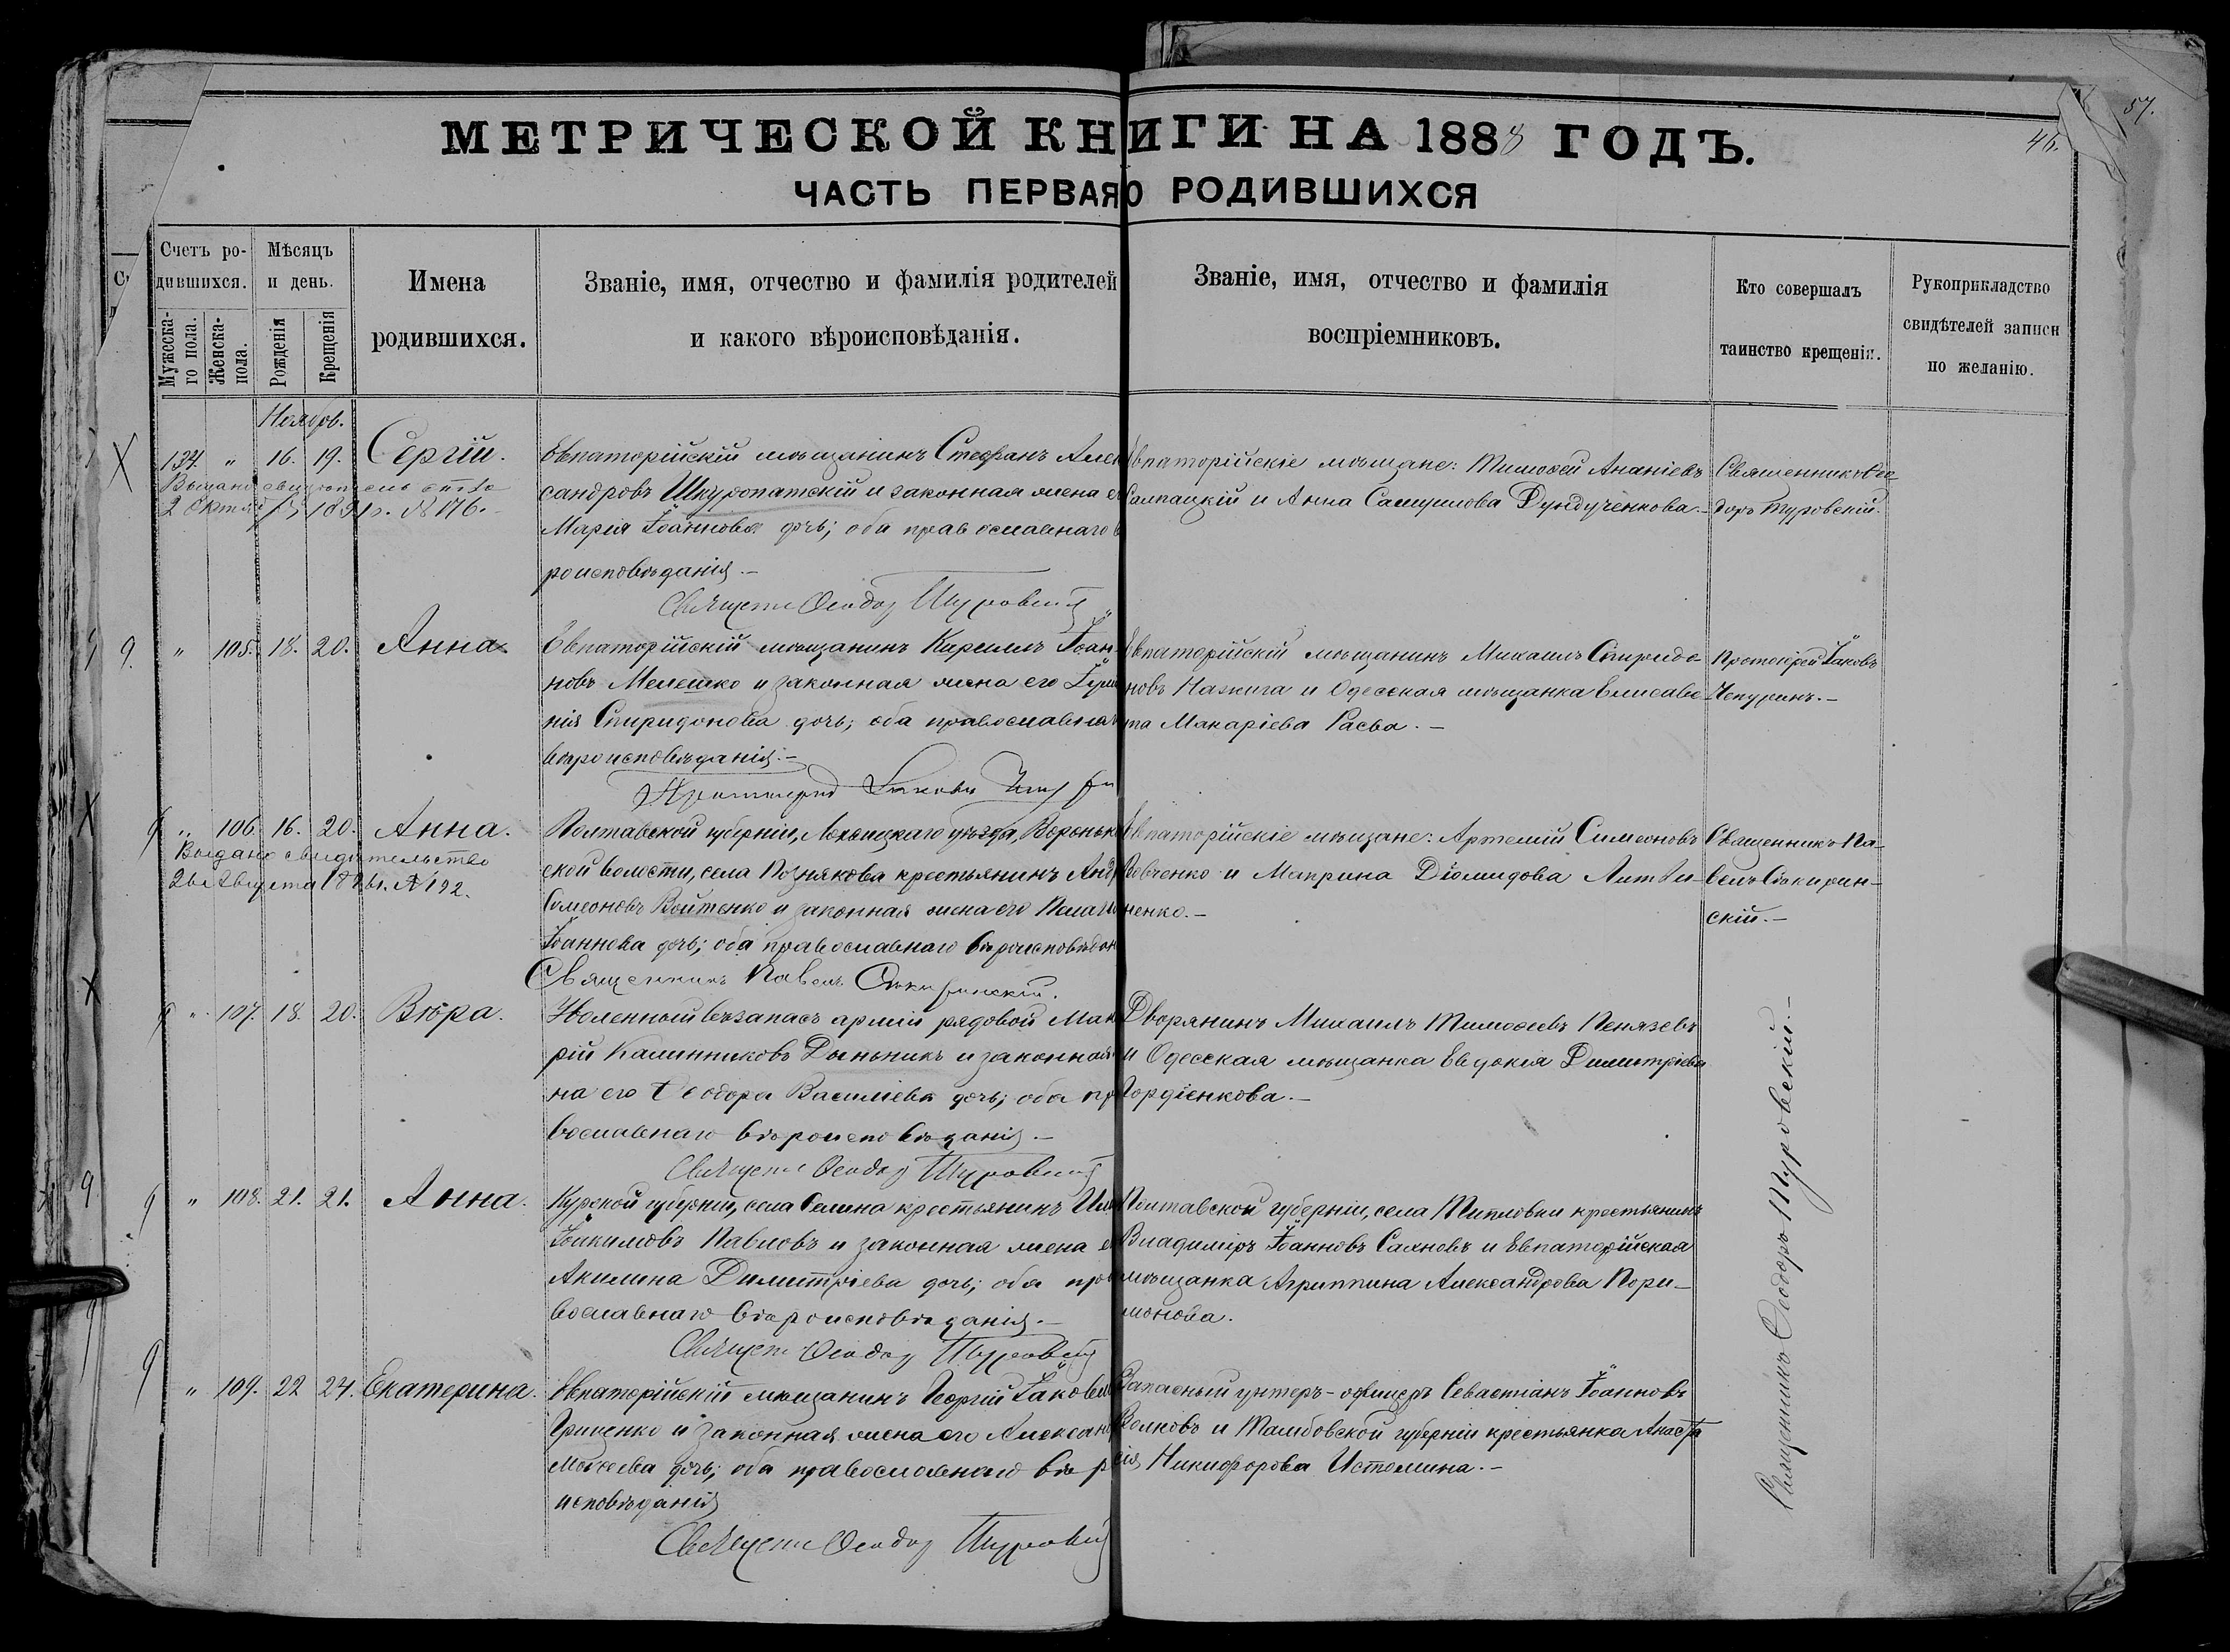 57.
46.
МЕТРИЧЕСКОЙ КНИГИ НА 1888 ГОДЪ.
ЧАСТЬ ПЕРВАЯ О РОДИВШИХСЯ
Счетъ ро-
дившихся.
Мужеска-
го пола.
Женска-
пола.
Мѣсяцъ
и день.
Рожденія
Крещенія
Имена
родившихся.
Званіе, имя, отчество и фамилія родителей
и какого вѣроисповѣданія.
Званіе, имя, отчество и фамилія
воспріемниковъ.
Кто совершалъ
таинство крещенія.
Рукоприкладство
свидѣтелей записи
по желанію.
Ноябрь.
134. " 16. 19. Сергій.
Выдано свидѣтельство
2 Октяб 1891г. №176.
Евпаторійскій мѣщанинъ Стефанъ Алек
сандровъ Шкуропатскій и законная жена е
Марія Іоаннова дочь; оба православнаго в
роисповѣданія.-
Священ Ѳеодор Туровскій
Евпаторійскіе мѣщане: Тимоѳей Ананіевъ
Салпацкій и Анна Самуилова Дундученкова.-
Священникъ Ѳео
доръ Туровскій.
" 105. 18. 20. Анна
Евпаторійскій мѣщанинъ Кириллъ Іоан-
новъ Мелешко и законная жена его
нія Спиридонова дочь; оба православнаг
вѣроисповѣданія.-
Протоіерей Іаковъ
Евпаторійскій мѣщанинъ Михаилъ Спиридо
новъ и Одесская мѣщанка Елисаве
та Макаріева Расва.-
Протоіерей Іаковъ
Чепуринъ.-
" 106. 16. 20. Анна.
Выдано свидѣтельство
26 Августа 1896г. №192.
Полтавской губерніи, Лохвицкаго уѣзда, Вороньк
ской волости, села Познякова крестьянинъ Андр
Симеоновъ Войтенко и законная жена его Пелаги
Іоаннова дочь; оба православнаго вѣроисповѣдан
Священникъ Павелъ Сокиринскій.
Евпаторійскіе мѣщане: Артемій Симеоновъ
Вовченко и Матрина Діомидова Литви-
ненко.-
Священникъ Па-
велъ Сокирин-
скій.-
" 107. 18. 20. Вѣра.
Уволенный въ запасъ арміи рядовой Мак
рій Калинниковъ Дыньникъ и законная
на его Ѳеодора Василіева дочь; оба пр
вославнаго вѣроисповѣданія.-
Священ Ѳеодор Туровскій
Дворянинъ Михаилъ Тимоѳеевъ Пенязевъ
и Одесская мѣщанка Евдокія Димитріева
Гордіенкова.-
" 108. 21. 21. Анна.
Курской губерніи, села Селина крестьянинъ
Іоакимовъ Павловъ и законная жена е
Акилина Димитріева дочь; оба пра
вославнаго вѣроисповѣданія.-
Священ Ѳеодор Туровскій
Полтавской губерніи, села Типловки крестьянинъ
Владиміръ Іоанновъ Сахновъ и Евпаторійская
мѣщанка Агриппина Александрова Пори-
монова.
" 109. 22 24. Екатерина.
Евпаторійскій мѣщанинъ Георгій Іаковл
Гриценко и законная жена его Алексан
Моѵсеева дочь; оба православнаго вѣр
исповѣданія
Священ Ѳеодор Туровскій
Запасный унтеръ-офицеръ Севастіанъ Іоанновъ
Волковъ и Тамбовской губерніи крестьянка Анаста
сія Никифорова Истомина.-
Священникъ Ѳеодоръ Туровскій.-